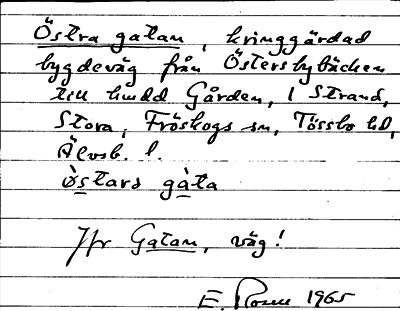 Östra gatan, kringgärdad
bygdeväg från Östersbybäcken
till hmdd Gården, 1 Strand,
Stora, Fröskogs sn, Tössbo hd,
Älvsb. l.
òstara gàta
Jfr Gatan, väg!
E. Rosen 1965